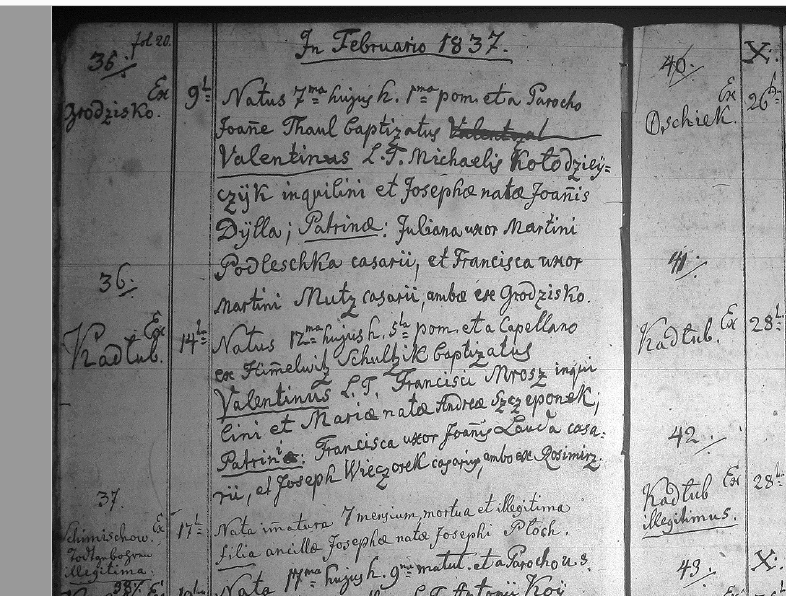 fol 20.
In Februario 1837.
35.
Ex
Grodzisko.
9
Natus 7ma hujus h. 1ma pom. et a Parocho
Joane Thaul baptizatus
Valentinus L.T. Michaelis Kołodziey=
czÿk inquilini et Josephæ natæ Joanis
Dÿlla; Patrinæ: Juliana uxor Martini
Podleschka casarii, et Francisca uxor
Martini Mutz casarii, ambæ ex Grodzisko.
36.
Ex
Kadłub.
14
Natus 12ma hujus h. 5ta pom. et a Capellano
ex Himelwitz Schultzik baptizatus
Valentinus L.T. Francisci Mrosz inqui
lini et Mariæ natæ Andreæ Szczeponek;
Patrini: Francisca uxor Joanis Lauda casa:
rii, et Joseph Wieczorek casarius, ambo ex Rosimirz.
37.
Ex
Schimischow.
Illegitima.
17
Nata imatura 7 mensium, mortua et illegitima
filia ancillæ Josephæ natæ Josephi Ploch.
38.
Ex
Nata 17ma hujus h. 9na matut. et a Parocho
L.T. Antonii
40.
Ex
Oschiek.
X:
26
41.
Ex
Kadłub.
28
42.
Ex
Kadłub
illegitimus.
28
43.
X: